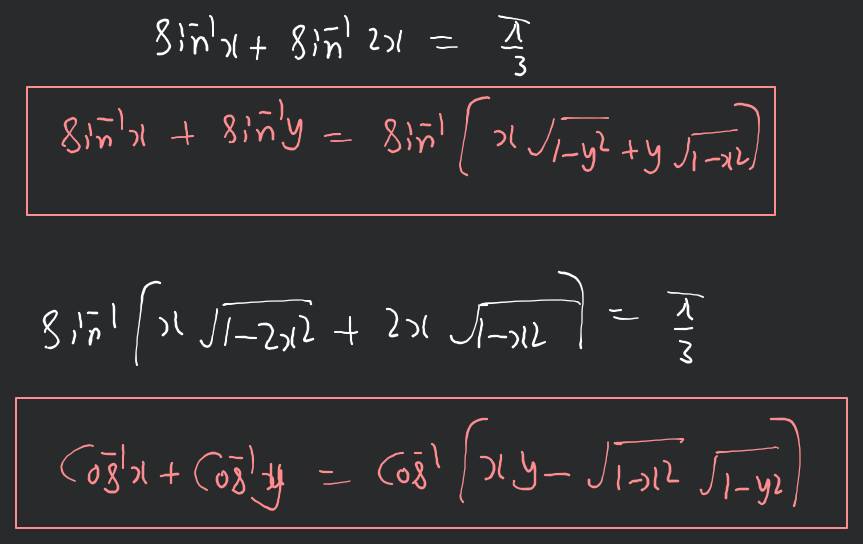 sin⁻¹x + sin⁻¹ 2x = π/3
sin⁻¹x + sin⁻¹y = sin⁻¹[x√(1-y²) + y√(1-x²)]
sin⁻¹[x√(1-2x²) + 2x√(1-x²)] = π/3
Cos⁻¹x + Cos⁻¹y = Cos⁻¹[xy - √(1-x²) √(1-y²)]